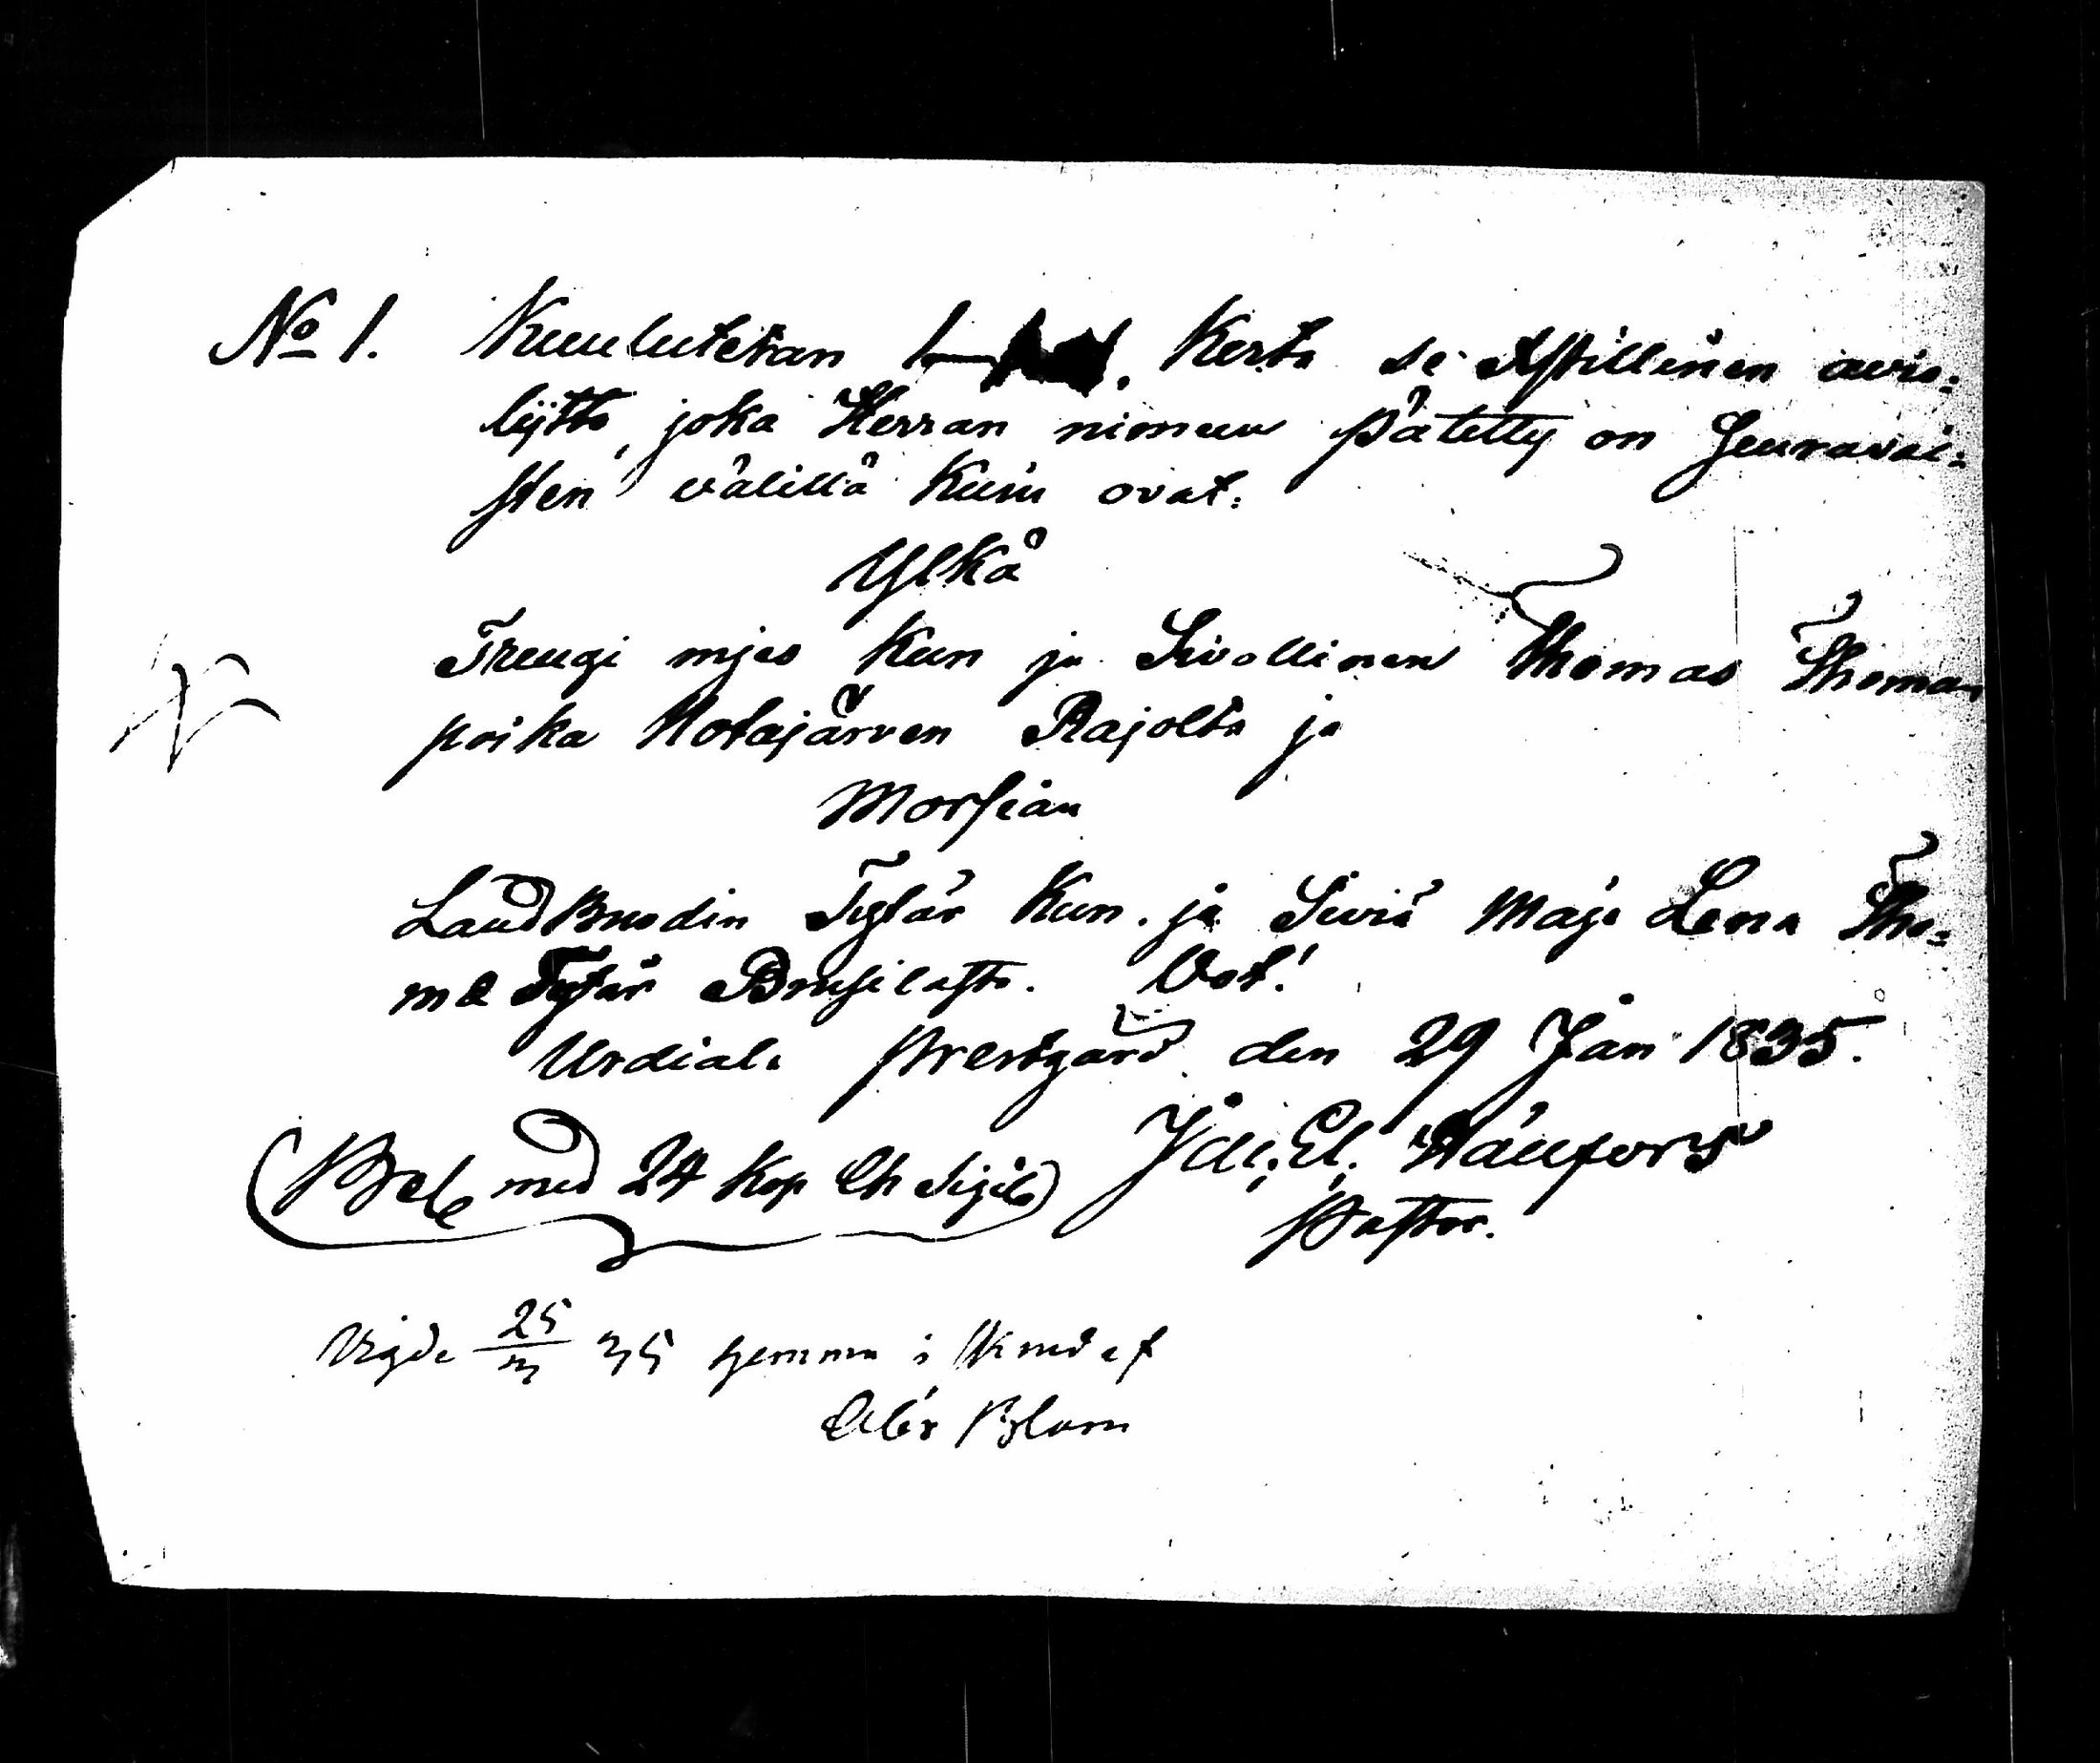 No 1. Kuulutetan 1 Kerta se Xstillinen avio:
lijtto, joka Herran nimeen påtetty on Seuravai:
sten välillä kuin ovat:
Ylkå
Treugi mjes Kun ja Sivollinen Thomas Thomas
poika Notajärven Rajolta ja
Morsian
Landbondin Tytår Kun. ja Siviä Maja Lena Tho=
mæ Tytår Brusilasta. Vot!
Urdiala Prestgård den 29 Jan 1835.
(Bel. med 24 Kop Ch Sigil) Joh. El.
Pastor.
Vigde 25/3 35 hemma i af
Alex Blom